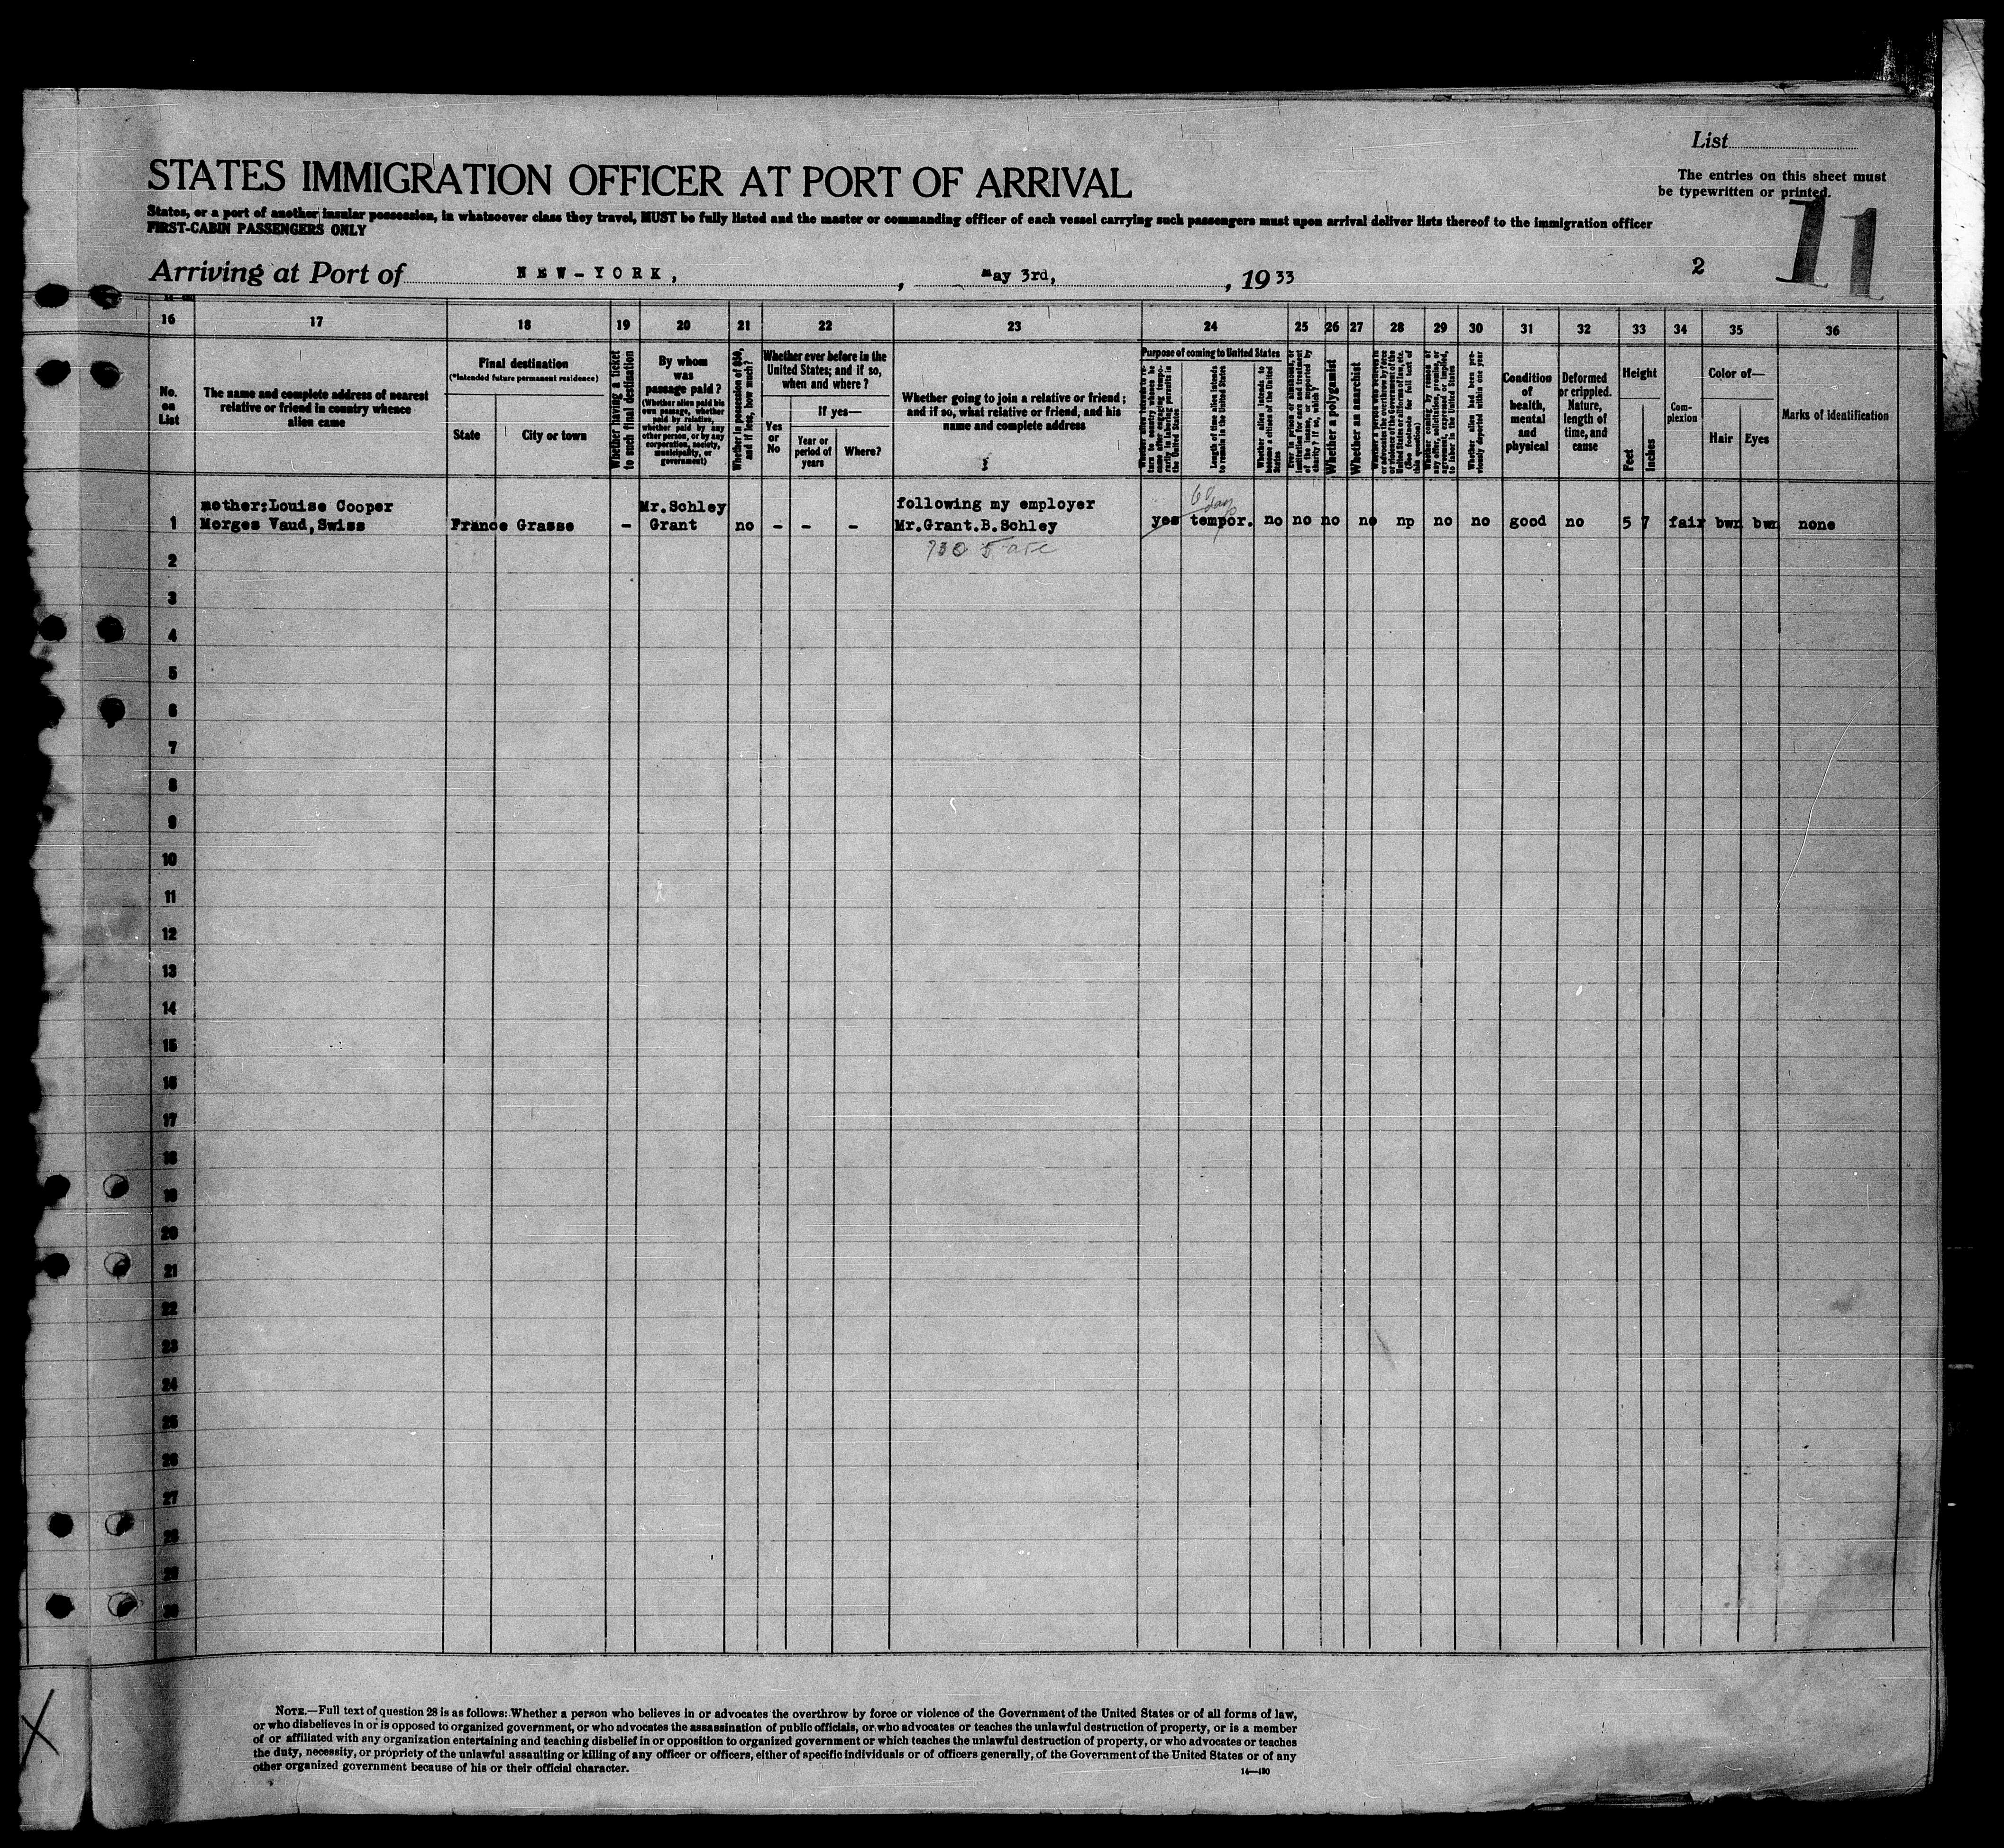 List
STATES IMMIGRATION OFFICER AT PORT OF ARRIVAL
The entries on this sheet must
be typewritten or printed.
States, or a port of another insular possession, in whatsoever class they travel, MUST be fully listed and the master or commanding officer of each vessel carrying such passengers must upon arrival deliver lists thereof to the immigration officer
FIRST-CABIN PASSENGERS ONLY
11
Arriving at Port of NEW-YORK, , May 3rd, , 1933
2
16 17 18 19 20 21 22 23 24 25 26 27 28 29 30 31 32 33 34 35 36
No. on List
The name and complete address of nearest
relative or friend in country whence
alien came
Final destination
(*Intended future permanent residence)
State
City or town
Whether having a ticket
to such final destination
By whom
was
passage paid?
(Whether alien paid his
own passage, whether
paid by relative,
whether paid by any
other person, or by any
corporation, society,
municipality, or
government)
Whether in possession of $50,
and if less, how much?
Whether ever before in the
United States; and if so,
when and where?
Yes
or
No
If yes—
Year or
period of
years
Where?
Whether going to join a relative or friend;
and if so, what relative or friend, and his
name and complete address
Purpose of coming to United States
Whether alien intends to return to country whence he came after engaging temporarily in laboring pursuits in the United States
Length of time alien intends
to remain in the United States
Whether alien intends to
become a citizen of the United
States
Ever in prison or almshouse, or
institution for care and treatment
of the insane, or supported by
charity? If so, which?
Whether a polygamist
Whether an anarchist
(See footnote for full text of
this question)
Whether coming by reason of
any offer, solicitation, promise, or
agreement, expressed or implied,
to labor in the United States
Whether alien had been previously deported within one year
Condition
of
health,
mental
and
physical
Deformed
or crippled.
Nature,
length of
time, and
cause
Height
Feet
Inches
Complexion
Color of—
Hair
Eyes
Marks of identification
mother:Louise Cooper
Mr.Schley
following my employer
60
days
1 Morges Vaud,Swiss France Grasse - Grant no - - - Mr.Grant.B.Schley yes tempor. no no no no np no no good no 5 7 fair bwn bwn none
730 5 ave
2
3
4
5
6
7
8
9
10
11
12
13
14
15
16
17
18
19
20
21
22
23
24
25
26
27
28
29
30
X
NOTE.—Full text of question 28 is as follows: Whether a person who believes in or advocates the overthrow by force or violence of the Government of the United States or of all forms of law,
or who disbelieves in or is opposed to organized government, or who advocates the assassination of public officials, or who advocates or teaches the unlawful destruction of property, or is a member
of or affiliated with any organization entertaining and teaching disbelief in or opposition to organized government or which teaches the unlawful destruction of property, or who advocates or teaches
the duty, necessity, or propriety of the unlawful assaulting or killing of any officer or officers, either of specific individuals or of officers generally, of the Government of the United States or of any
other organized government because of his or their official character.
14—430